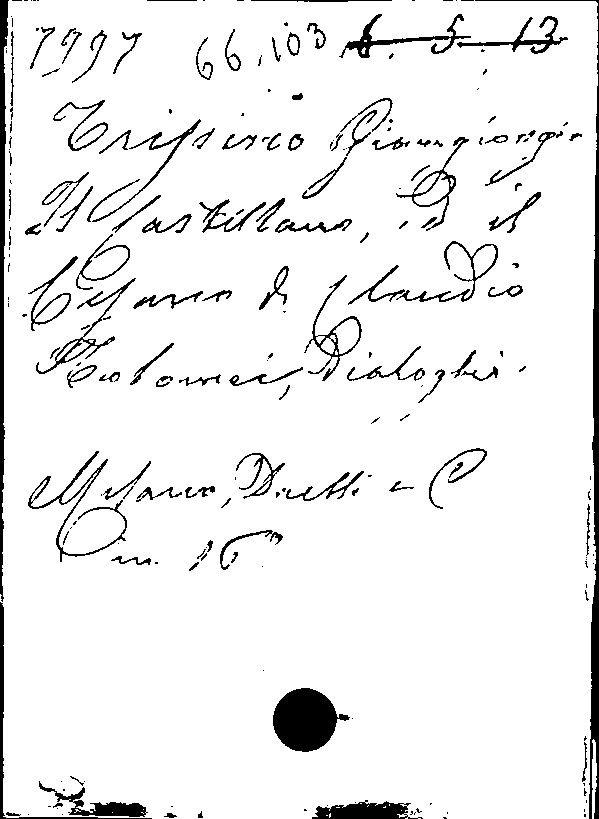 7997 66.103 6. 5. 13
Trissino Giangiorgio
Il Castillano, ed il
Cesano di Claudio
Tolomei, Dialoghi.
Milano, Daelli e C
in 16°